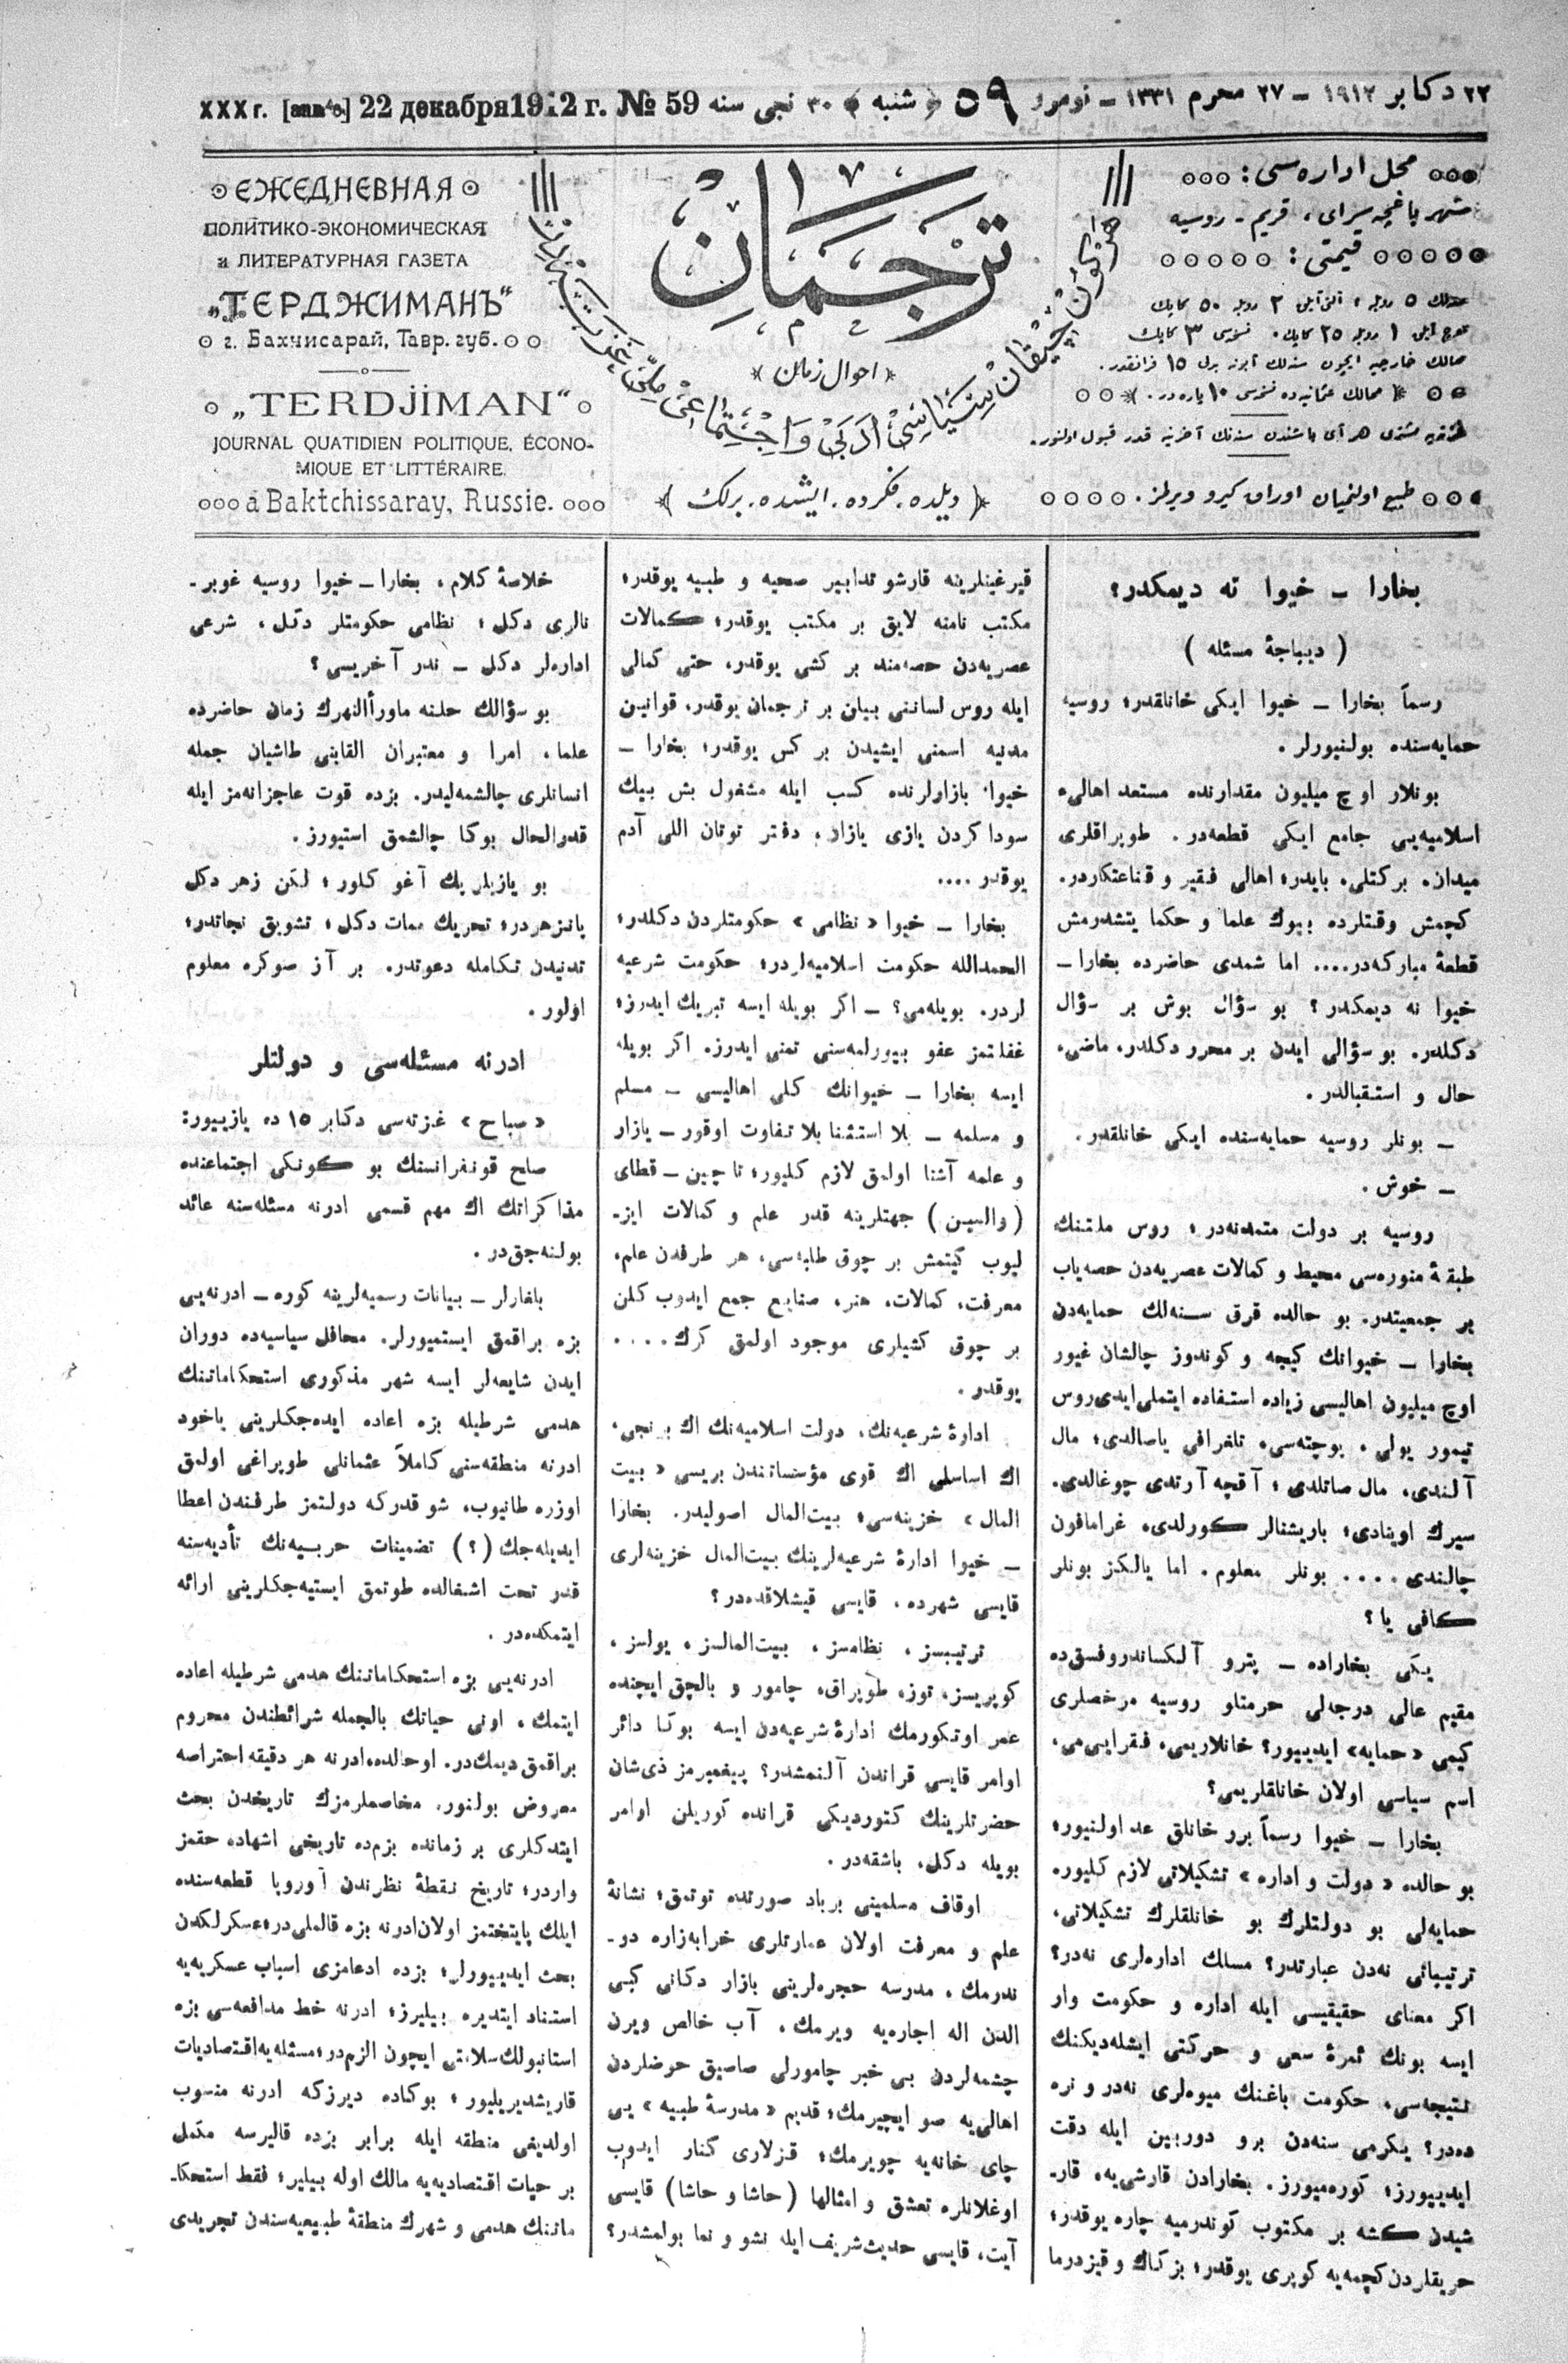 ٢٢ دكابر ١٩١٢ – ٢٧ محرم ١٣٣١ – نومرو ٥٩ ﴿شنبه﴾ ٣٠ نجى سنه
XXX г. 22 декабря 1912 г. № 59
ЕЖЕДНЕВНАЯ
ПОЛИТИКО-ЭКОНОМИЧЕСКАЯ
и ЛИТЕРАТУРНАЯ ГАЗЕТА
„ТЕРДЖИМАНЪ“
г. Бахчисарай, Тавр. губ.
„TERDJIMAN“
JOURNAL QUATIDIEN POLITIQUE, ÉCONO-
MIQUE ET LITTÉRAIRE.
á Baktchissaray, Russie.
ترجمان
﴿احوال زمان﴾
سياسى ادبى و اجتماعى ملى غزته
﴿ديلده. فكرده. ايشده. برلك﴾
محل اداره سى:
شهر باغچه سراى، قريم – روسيه
قيمتى:
سنه لك ٥ روبله، التى آيلق ٣ روبله ٥٠ كاپك
اوچ آيلق ١ روبله ٢٥ كاپك. نسخه سى ٣ كاپك
ممالك خارجيه ايچون سنه لك آبونه بدلى ١٥ فرانقدر.
ممالك عثمانيه ده نسخه سى ١٠ پاره در.
مشترى هر آى باشندن سنه نك آخرينه قدر قبول اولنور.
طبع اولنميان اوراق كيرو ويرلمز.
بخارا – خيوا نه ديمكدر؟
(ديباجهٔ مسئله)
رسماً بخارا – خيوا ايكى خانلقدر؛ روسيه
حمايه‌سنده بولنيورلر.
بونلار اوچ ميليون مقدارنده مستعد اهالىء
اسلاميه‌يى جامع ايكى قطعه‌در. طوپراقلرى
ميدان، بركتلى، بايدر؛ اهالى فقير و قناعتكاردر.
كچمش وقتلرده بيوك علما و حكما يتشدرمش
قطعهٔ مباركه‌در.... اما شمدى حاضرده بخارا –
خيوا نه ديمكدر؟ بو سؤال بوش بر سؤال
دكلدر. بو سؤالى ايدن بر محرر دكلدر، ماضى،
حال و استقبالدر.
– بونلر روسيه حمايه‌سنده ايكى خانلقدر.
– خوش.
روسيه بر دولت متمدنه‌در؛ روس ملتنك
طبقهٔ منوره‌سى محيط و كمالات عصريه‌دن حصه‌ياب
بر جمعيتدر. بو حالده قرق سنه‌لك حمايه‌دن
بخارا – خيوانك كيجه و كوندوز چالشان غيور
اوچ ميليون اهاليسى زياده استفاده ايتملى ايدى روس
تيمور يولى، پوچته‌سى، تلغرافى ياصالدى؛ مال
آلندى، مال صاتلدى؛ آقچه آرتدى چوغالدى.
سيرك اوينادى؛ باريشنالر كورلدى، غرامافون
چالندى.... بونلر معلوم. اما يالكز بونلر
كافى يا؟
يكى بخاراده – پترو آلكساندروفسق‌ده
مقيم عالى درجه‌لى حرمتلو روسيه مرخصلرى
كيمى «حمايه» ايدييور؟ خانلاريمى، فقرايى‌مى،
اسم سياسى اولان خانلقلريمى؟
بخارا – خيوا رسماً برر خانلق عد اولنيور؛
بو حالده «دولت و اداره» تشكيلاتى لازم كليور.
حمايه‌لى بو دولتلرك بو خانلقلرك تشكيلاتى،
ترتيباتى نه‌دن عبارتدر؟ مسلك اداره‌لرى نه‌در؟
اكر معناى حقيقيسى ايله اداره و حكومت وار
ايسه بونك ثمرهٔ سعى و حركتى ايشله‌ديكنك
نتيجه‌سى، حكومت باغنك ميوه‌لرى نه‌در و نره
ده‌در؟ يكرمى سنه‌دن برو دوربين ايله دقت
ايدييورز؛ كوره‌ميورز. بخارادن قارشى‌يه، قار-
شيدن كشه بر مكتوب كوندرميه چاره يوقدر؛
حريقلردن كچمه‌يه كوپرى يوقدر؛ بزكاك و قيزدرما
قيرغينلرينه قارشو تدابير صحيه و طبيه يوقدر؛
مكتب نامنه لايق بر مكتب يوقدر؛ كمالات
عصريه‌دن حصه‌مند بر كشى يوقدر، حتى كمالى
ايله روس لساننى بيلن بر ترجمان يوقدر، قوانين
مدنيه اسمنى ايشيدن بر كس يوقدر؛ بخارا –
خيوا بازاولرنده كسب ايله مشغول بش بيك
سوداكردن يازى يازان، دفتر توتان اللى آدم
يوقدر....
بخارا – خيوا «نظامى» حكومتلردن دكلدر؛
الحمدالله حكومت اسلاميه‌لردر؛ حكومت شرعيه
لردر. بويله‌مى؟ – اكر بويله ايسه تبريك ايدرز؛
غفلتمز عفو بيورلمه‌سنى تمنى ايدرز. اكر بويله
ايسه بخارا – خيوانك كلى اهاليسى – مسلم
و مسلمه – بلا استثنا بلا تفاوت اوقور – يازار
و علمه آشنا اولمق لازم كليور؛ تا چين – قطاى
(والصين) جهتلرينه قدر علم و كمالات ايز-
ليوب كيتمش بر چوق طلبه‌سى، هر طرفدن علم،
معرفت، كمالات، هنر، صنايع جمع ايدوب كلن
بر چوق كشيلرى موجود اولمق كرك....
يوقدر.
ادارهٔ شرعيه‌نك، دولت اسلاميه‌نك اك برنجى،
اك اساسلى اك قوى مؤسساتندن بريسى «بيت
المال» خزينه‌سى؛ بيت‌المال اصوليدر. بخارا
– خيوا ادارهٔ شرعيه‌لرينك بيت‌المال خزينه‌لرى
قايسى شهرده، قايسى قيشلاقده‌در؟
ترتيبسز، نظامسز، بيت‌المالسز، يولسز،
كوپريسز، توز، طوپراق، چامور و بالچق ايچنده
عمر اوتكورمك ادارهٔ شرعيه‌دن ايسه بوكا دائر
اوامر قايسى قراندن آلنمشدر؟ پيغمبرمز ذى‌شان
حضرتلرينك كتورديكى قرانده كوريلن اوامر
بويله دكل، باشقه‌در.
اوقاف مسلمينى برباد صورتده توتمق؛ نشانهٔ
علم و معرفت اولان عمارتلرى خرابه‌زاره دو-
ندرمك، مدرسه حجره‌لرينى بازار دكانى كبى
الدن اله اجاره‌يه ويرمك، آب خالص ويرن
چشمه‌لردن بى خبر چامورلى صاصيق حوضلردن
اهالى‌يه صو ايچيرمك؛ قديم «مدرسهٔ طبيه» يى
چاى خانه‌يه چويرمك؛ قزلارى كنار ايدوب
اوغلانلره تعشق و امثالها (حاشا و حاشا) قايسى
آيت، قايسى حديث شريف ايله نشو و نما بولمشدر؟
خلاصهٔ كلام، بخارا – خيوا روسيه غوبر-
نالرى دكل؛ نظامى حكومتلر دكل، شرعى
اداره‌لر دكل – ندر آخريسى؟
بو سؤالك حلنه ماورأالنهرك زمان حاضرده
علما، امرا و معتبران القابنى طاشيان جمله
انسانلرى چالشمه‌ليدر. بزده قوت عاجزانه‌مز ايله
قدرالحال بوكا چالشمق استيورز.
بو يازيلر پك آغو كلور؛ لكن زهر دكل
پانزهردر؛ تحريك ممات دكل؛ تشويق نجاتدر؛
تدنيدن تكامله دعوتدر. بر آز صوكره معلوم
اولور.
ادرنه مسئله‌سى و دولتلر
«صباح» غزته‌سى دكابر ١٥ ده يازييور:
صلح قونفرانسنك بو كونكى اجتماعنده
مذاكراتك اك مهم قسمى ادرنه مسئله‌سنه عائد
بولنه‌جق‌در.
بلغارلر – بيانات رسميه‌لرينه كوره – ادرنه‌يى
بزه براقمق ايستميورلر. محافل سياسيه‌ده دوران
ايدن شايعه‌لر ايسه شهر مذكورى استحكاماتنك
هدمى شرطيله بزه اعاده ايده‌جكلرينى ياخود
ادرنه منطقه‌سنى كاملاً عثمانلى طوپراغى اولمق
اوزره طانيوب، شو قدركه دولتمز طرفندن اعطا
ايديله‌جك (؟) تضمينات حربيه‌نك تأديه‌سنه
قدر تحت اشغالده طوتمق ايستيه‌جكلرينى ارائه
ايتمكده‌در.
ادرنه‌يى بزه استحكاماتنك هدمى شرطيله اعاده
ايتمك، اونى حياتك بالجمله شرائطندن محروم
براقمق ديمك‌در. اوحالده، ادرنه هر دقيقه احتراصه
معروض بولنور. مخاصملرمزك تاريخدن بحث
ايتدكلرى بر زمانده بزم‌ده تاريخى اشهاده حقمز
واردر؛ تاريخ نقطهٔ نظرندن آوروپا قطعه‌سنده
ايلك پايتختمز اولان ادرنه بزه قالملى‌در؛ عسكرلكدن
بحث ايدييورلر؛ بزده ادعامزى اسباب عسكريه‌يه
استناد ايتديره بيليرز؛ ادرنه خط مدافعه‌سى بزه
استانبولك سلامتى ايچون الزم‌در؛ مسئله‌يه اقتصاديات
قاريشديريليور؛ بوكاده ديرزكه ادرنه منسوب
اولديغى منطقه ايله برابر بزده قاليرسه مكمل
بر حيات اقتصاديه‌يه مالك اوله بيلير؛ فقط استحكا-
ماتنك هدمى و شهرك منطقهٔ طبيعيه‌سندن تجريدى